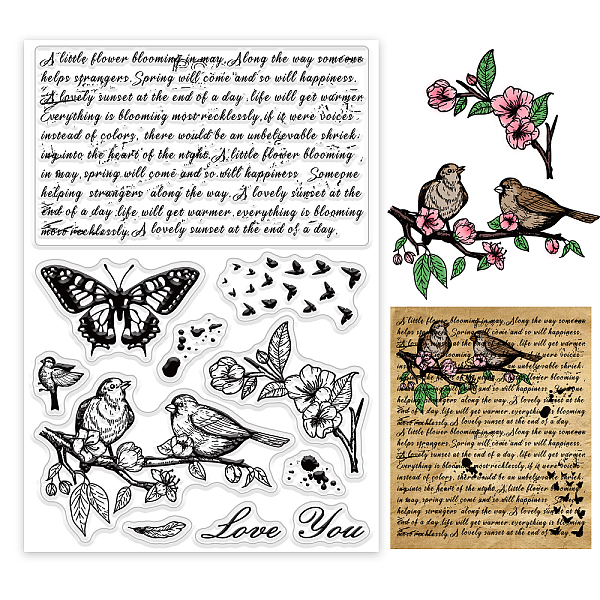 A little flower blooming in may. Along the way someone
helps strangers. Spring will come and so will happiness.
A lovely sunset at the end of a day. life will get warmer
Everything is blooming most recklessly, if it were voices
instead of colors, there would be an unbelievable shriek-
ing into the heart of the night. A little flower blooming
in may, spring will come and so will happiness Someone
helping strangers along the way. A lovely sunset at the
end of a day life will get warmer. everything is blooming
most recklessly. A lovely sunset at the end of a day.
Love You
A little flower blooming in may. Along the way someone
Spring will come and so will happiness.
sunset at the
end of a day life will get warmer. everything is blooming
most recklessly. A lovely sunset at the end of a day.
A little flower blooming in may. Along the way someone
helps strangers. Spring will come and so will happiness.
A lovely sunset at the end of a day. life will get warmer
Everything is blooming most recklessly, if it were voices
instead of colors, there would be an unbelievable shriek-
ing into the heart of the night. A little flower blooming
in may, spring will come and so will happiness Someone
helping strangers along the way. A lovely sunset at the
end of a day life will get warmer. everything is blooming
most recklessly. A lovely sunset at the end of a day.